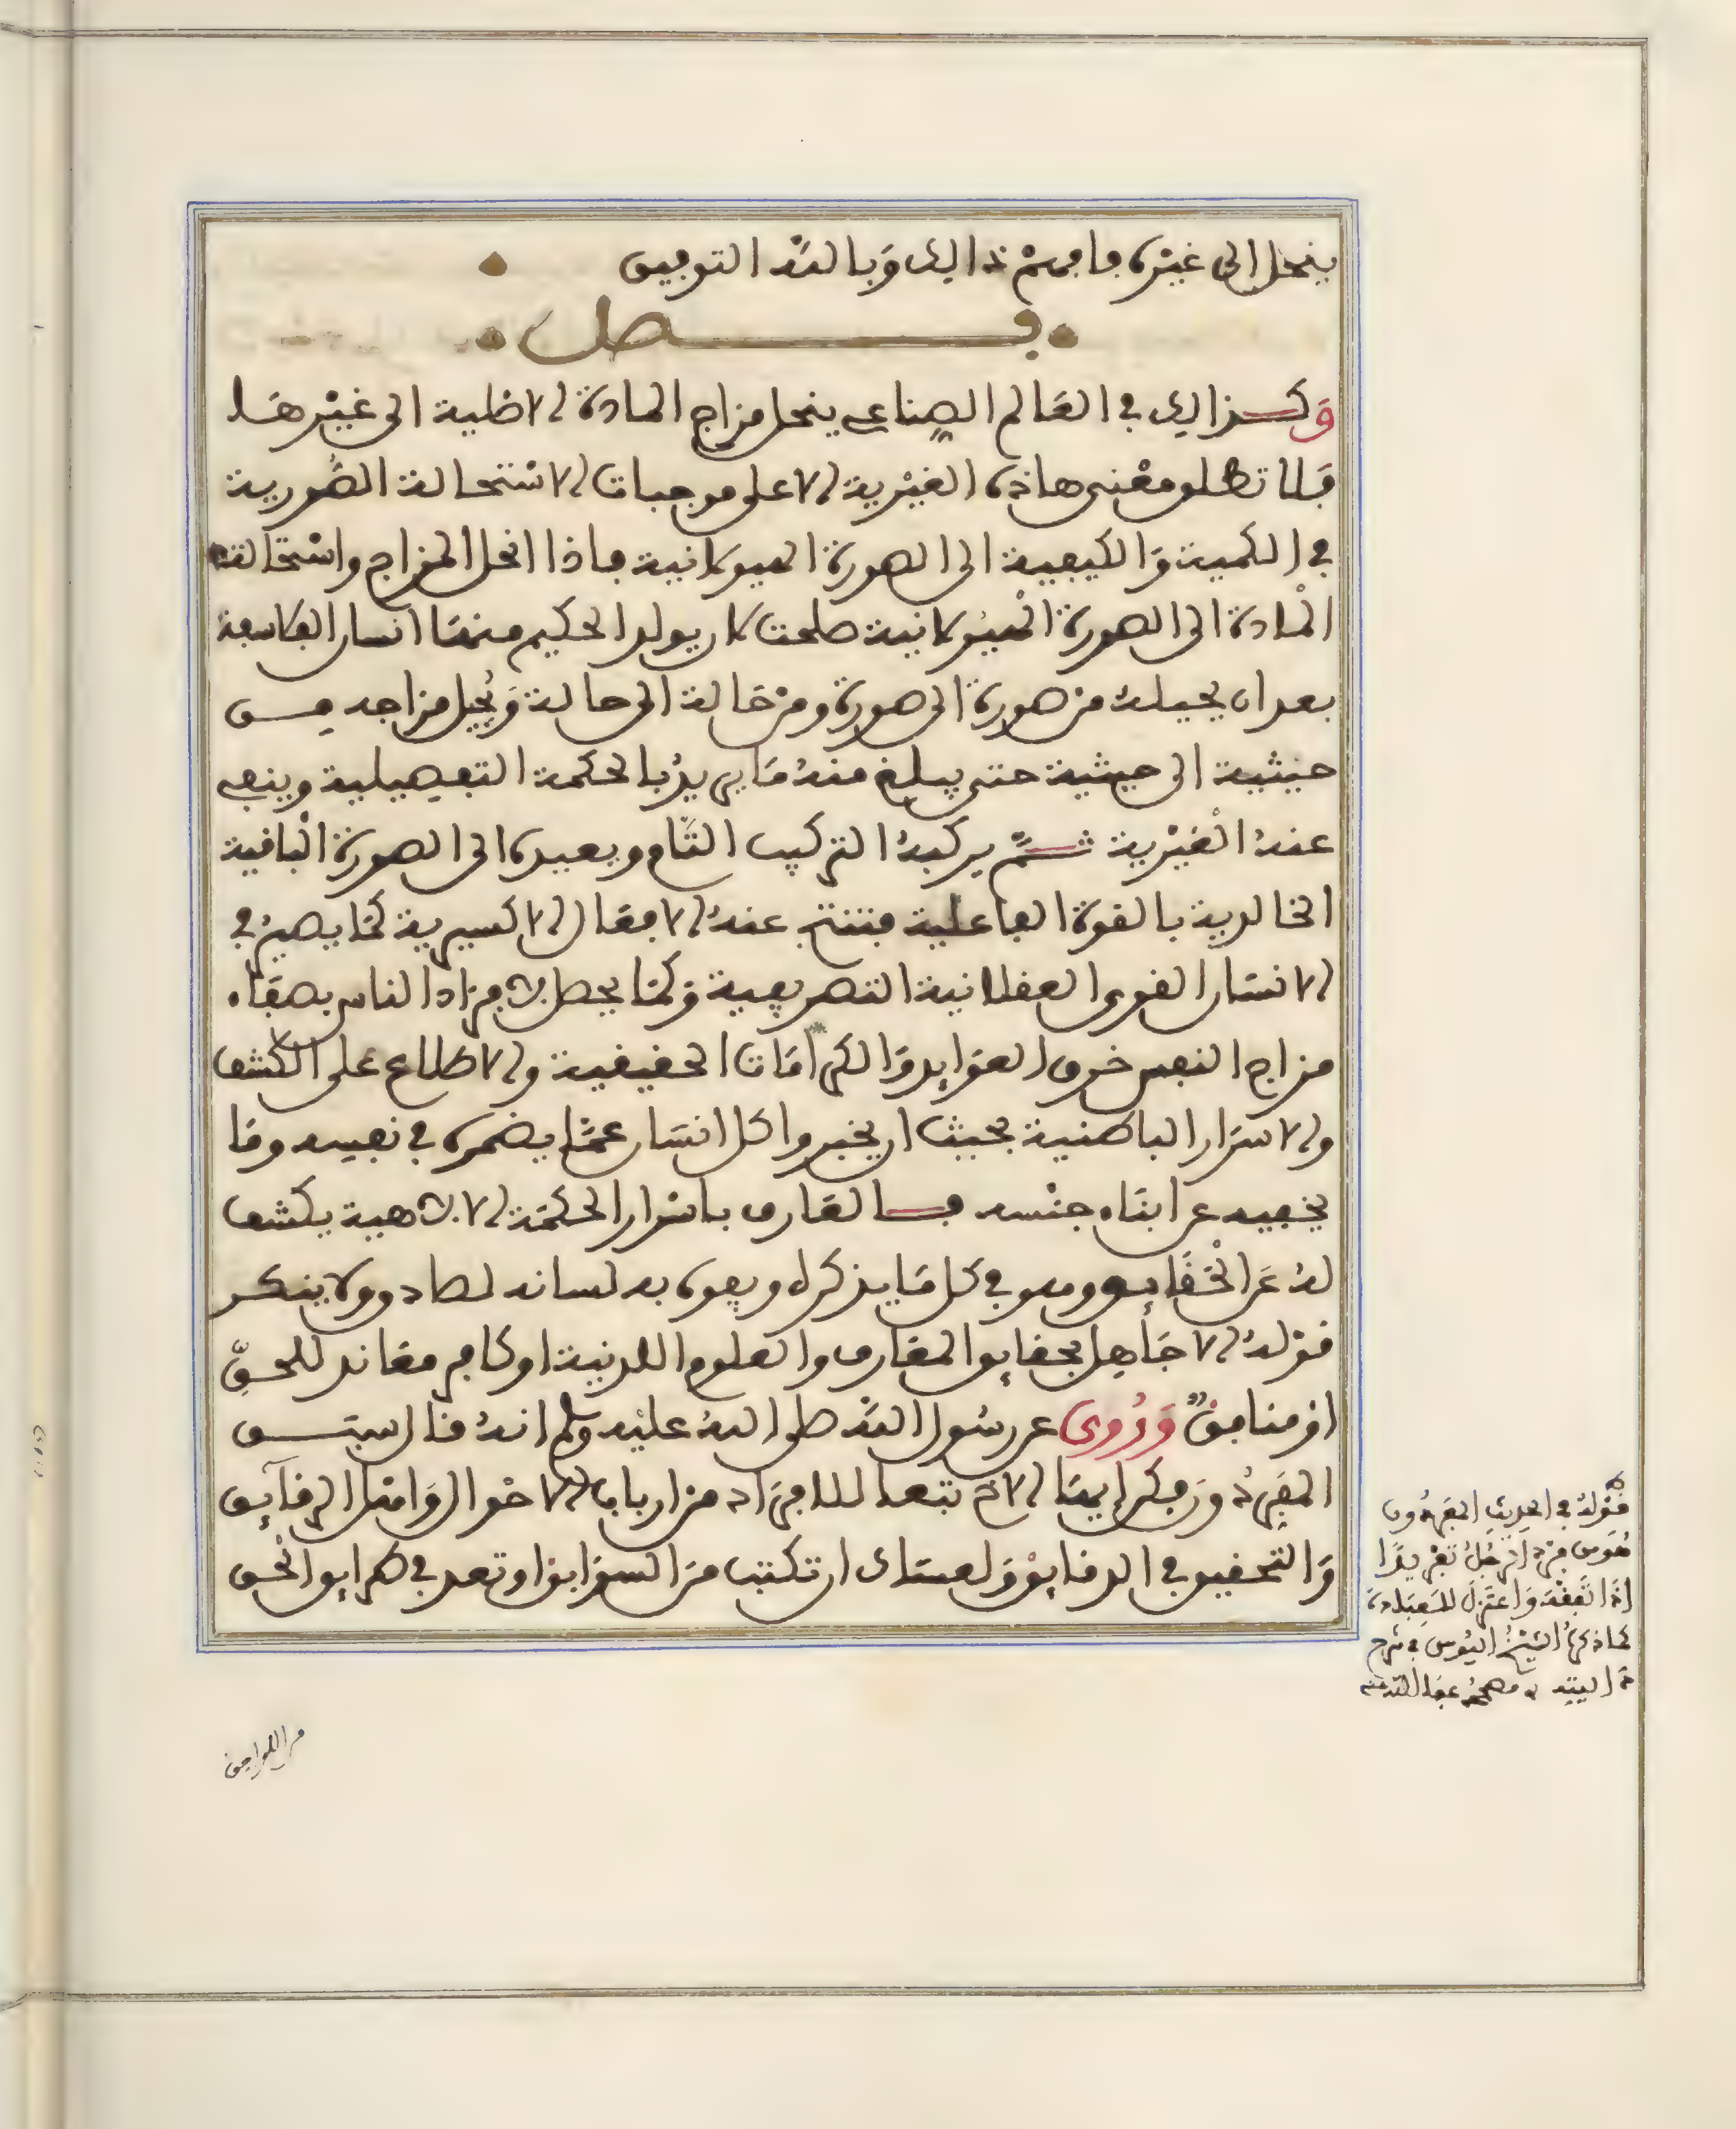 ينحل إلى غيره فافهم ذالك وبالله التوفيق
فصل
وكذالك في العالم الصناعي ينحل مزاج المادة الاصلية الى غيرها
فلا تطلق معنى هاذه الغيرية الا على موجبات الاستحالة الصورية
في الكمية والكيفية الى الصورة الهيولانية فاذا انحل المزاج واستحالة
المادة الى الصورة الهيولانية صلحت لان يولد الحكيم منها انسان الفلاسفة
بعد ان يحيله من صورة الى صورة ومن حالة الى حالة ويحيل مزاجه من
حيثية الى حيثية حتى يبلغ منه ما يريد بالحكمة التفصيلية وينفي
عنه الغيرية ثم يركبه التركيب التام ويعيده الى الصورة الباقية
الخالدية بالقوة الفاعلية فتنتج عنه الافعال الاكسيرية كما يصير في
الانسان القوى العقلانية التصريفية وكما يحصل لافراد الناس بصفاء
مزاج النفس خرق العوايد والكرامات الحقيقية والاطلاع على الكشف
والاسرار الباطنية بحيث ان يخبروا كل انسان عما يضمره في نفسه وما
يخفيه عن ابناء جنسه فالعارف باسرار الحكمة الالاهية يكشف
له عن الحقايق وهو في كل ما يذكره ويفوه به لسانه لصادق ولا ينكر
قوله الا جاهل بحقايق المعارف والعلوم اللدنية او كافر معاند للحق
او منافق وروي عن رسول الله صلى الله عليه وسلم انه قال سبق
المفردون فكن ايها الاخ تبعا للافراد من ارباب الاحوال وامثل الرقايق
والتحقيق في الدقايق ولعساك ان تكتب من السوابق وتعد في طرايق الحق
قوله في الحديث المفردون
هو من فرد الرجل تفريدا
اذا تفقه واعتزل للعبادة
كما ذكره الشيخ اليوسي في شرح
من اللواحق